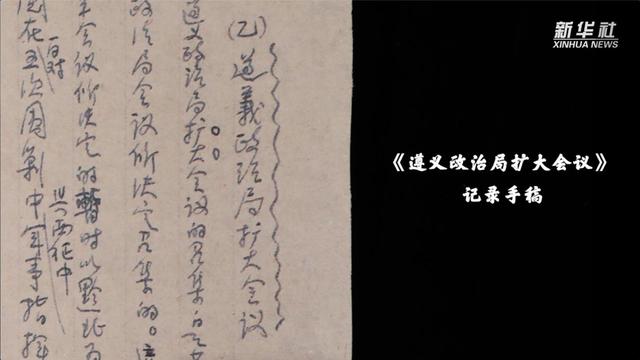 新华社
XINHUA NEWS
《遵义政治局扩大会议》
记录手稿
(乙)遵義政治局扩大会议
遵义政治局扩大会议的召集是
政治局会议所决定召集的。
会议所决定的暂时以黔北为
与西征中
阅在五次围剿中军事指挥